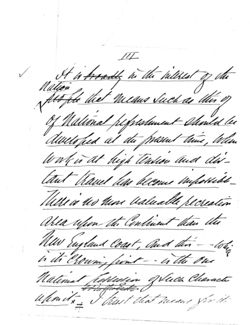 III
It is broadly in the interest of the
Nation
people that means such as this of
of National refreshment should be
developed at the present time, when
work is at high tension and dis-
tant travel has become impossible.
There is no more valuable recreation
area upon the Continent than the
New England Coast, and this -
in its Crowning point - is the one
National of such character
upon it. I trust that means for it